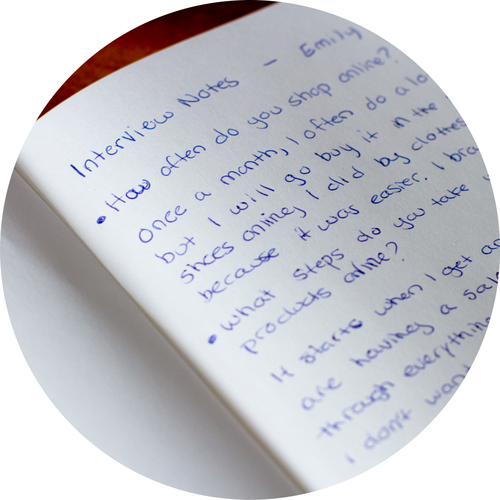 Interview Notes - Emily
• How often do you shop online?
Once a month, I often do a lo
but I will go buy it in the
shoes online, I did by clothes
because it was easier. I bra
• What steps do you take
products online?
It starts when I get an
are having a sal
through everything
I don't want